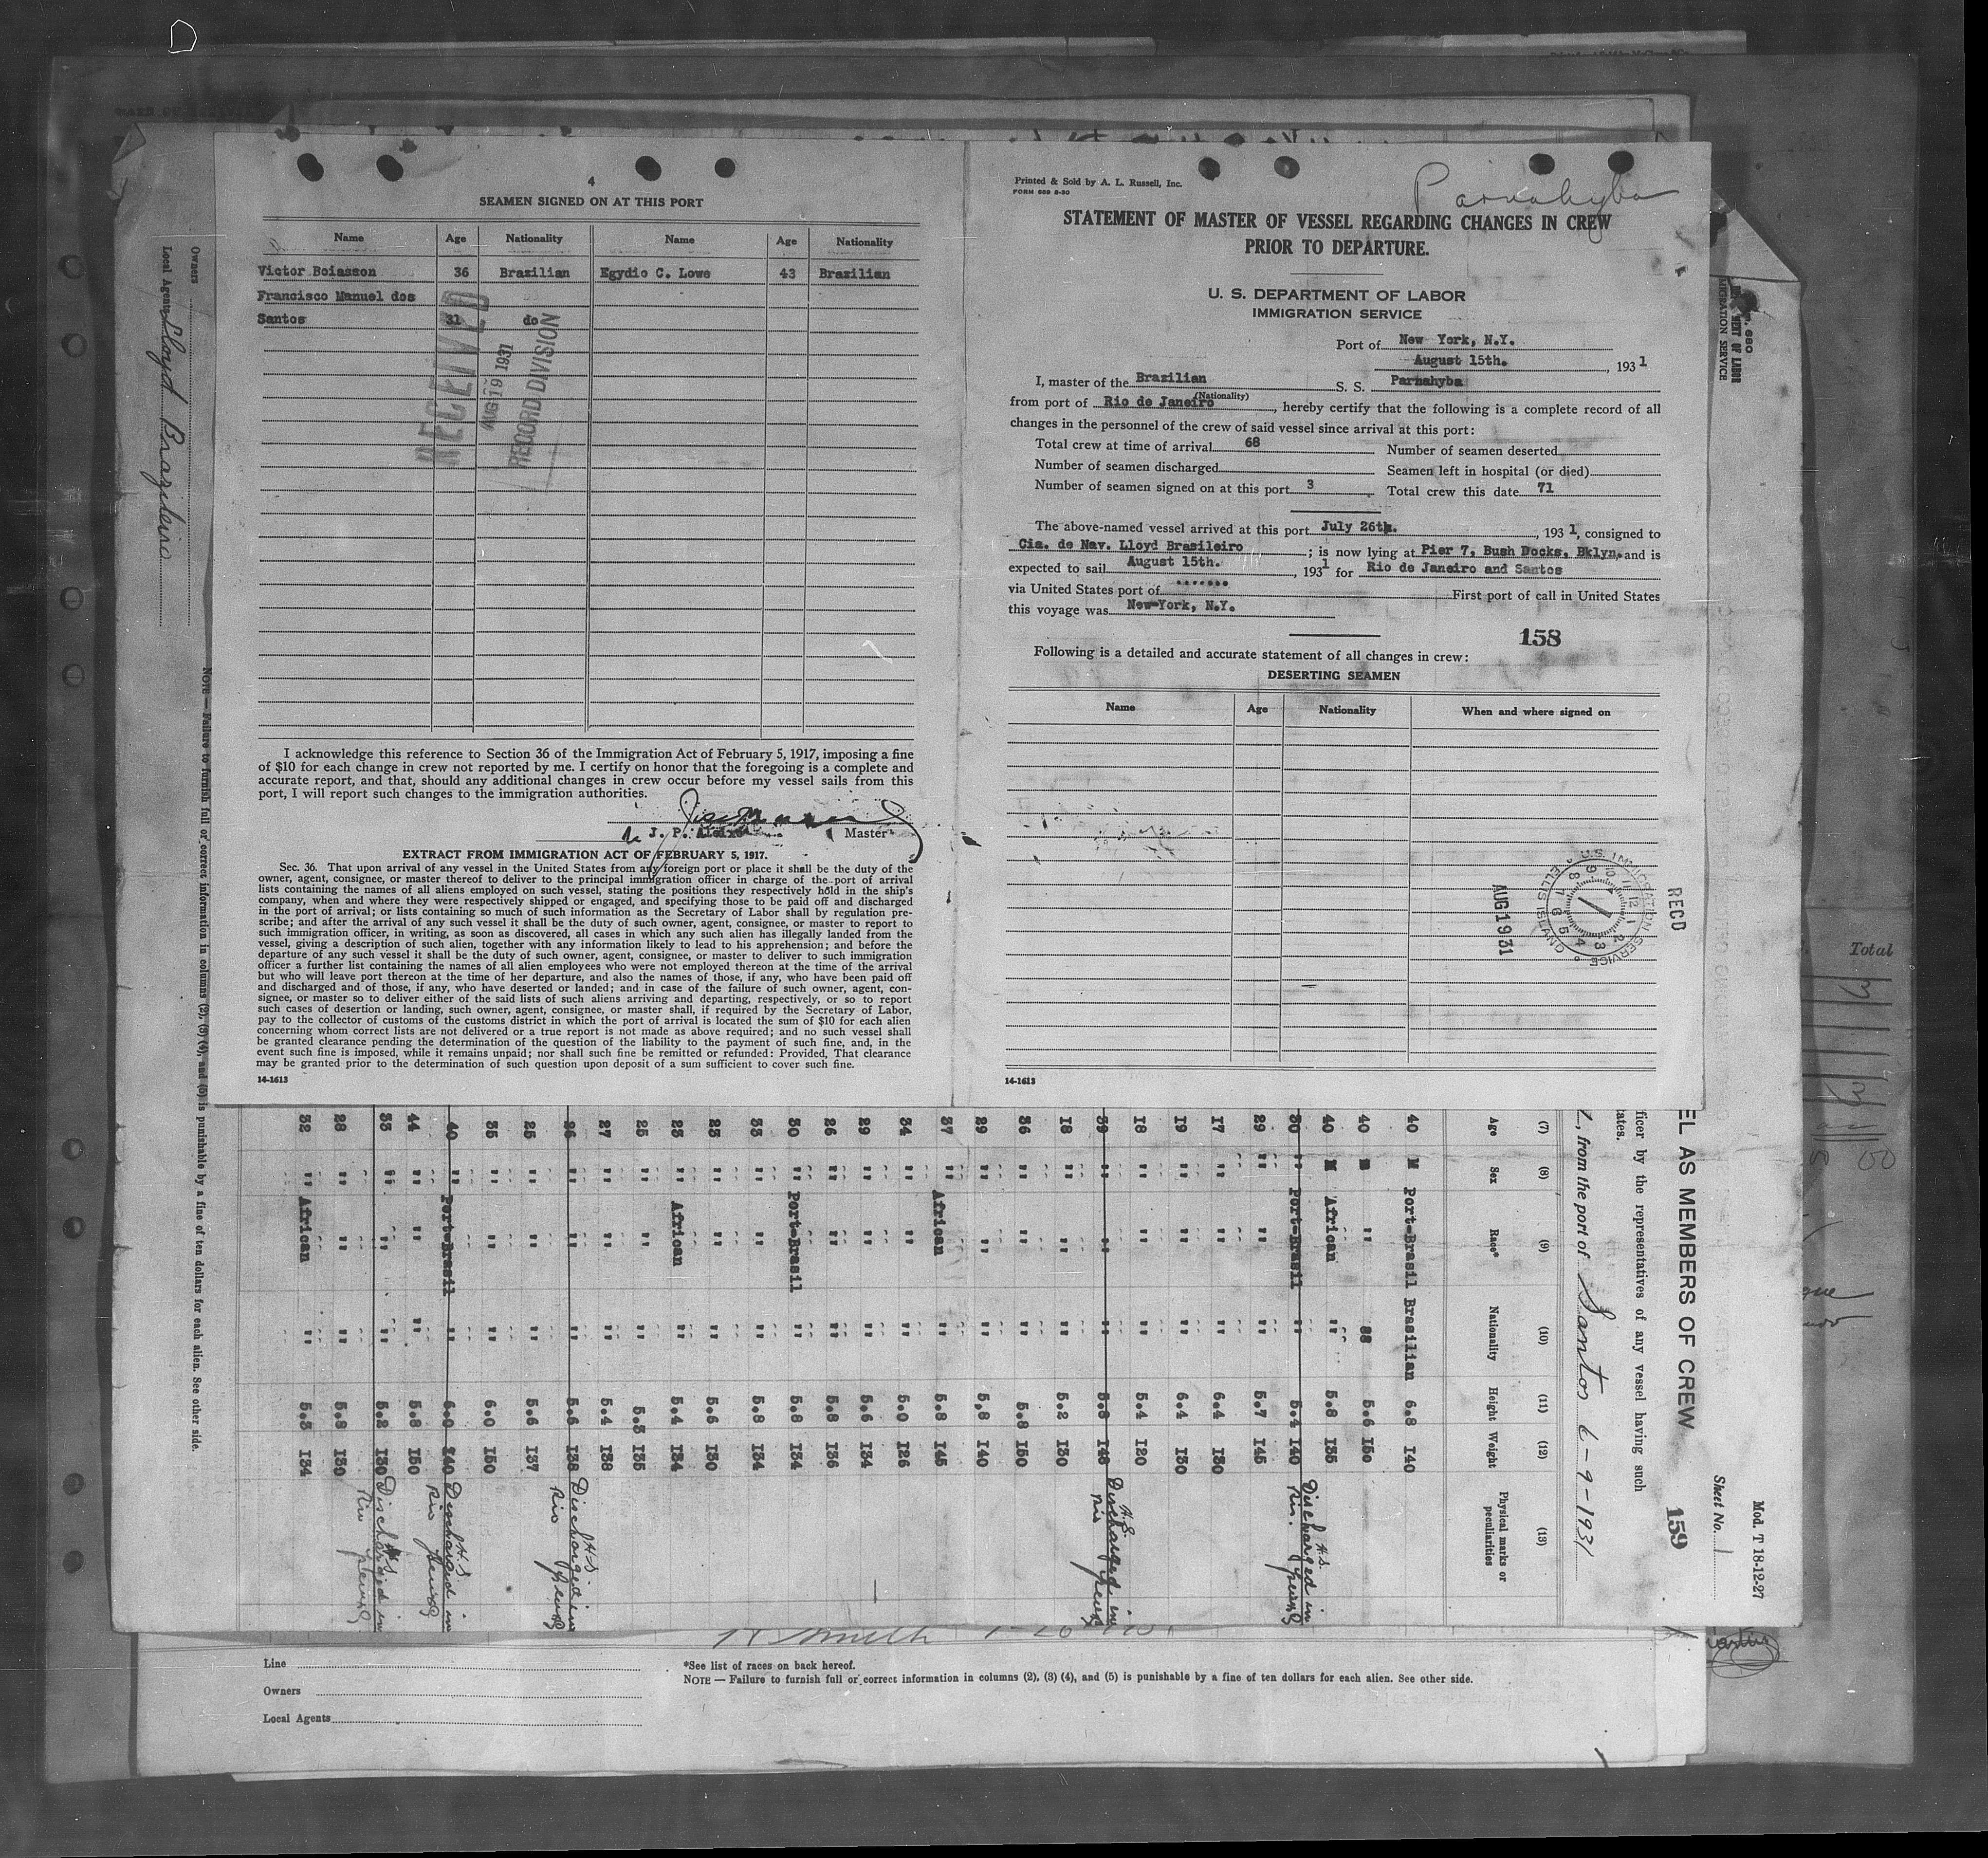 4
SEAMEN SIGNED ON AT THIS PORT
Name Age Nationality Name Age Nationality
Victor Boiasson 36 Brazilian Egydio C. Lowe 43 Brazilian
Francisco Manuel dos
Santos 31 do
RECEIVED
AUG 19 1931
RECORD DIVISION
I acknowledge this reference to Section 36 of the Immigration Act of February 5, 1917, imposing a fine
of $10 for each change in crew not reported by me. I certify on honor that the foregoing is a complete and
accurate report, and that, should any additional changes in crew occur before my vessel sails from this
port, I will report such changes to the immigration authorities.
J. P. Master
EXTRACT FROM IMMIGRATION ACT OF FEBRUARY 5, 1917.
Sec. 36. That upon arrival of any vessel in the United States from any foreign port or place it shall be the duty of the
owner, agent, consignee, or master thereof to deliver to the principal immigration officer in charge of the port of arrival
lists containing the names of all aliens employed on such vessel, stating the positions they respectively hold in the ship's
company, when and where they were respectively shipped or engaged, and specifying those to be paid off and discharged
in the port of arrival; or lists containing so much of such information as the Secretary of Labor shall by regulation pre-
scribe; and after the arrival of any such vessel it shall be the duty of such owner, agent, consignee, or master to report to
such immigration officer, in writing, as soon as discovered, all cases in which any such alien has illegally landed from the
vessel, giving a description of such alien, together with any information likely to lead to his apprehension; and before the
departure of any such vessel it shall be the duty of such owner, agent, consignee, or master to deliver to such immigration
officer a further list containing the names of all alien employees who were not employed thereon at the time of the arrival
but who will leave port thereon at the time of her departure, and also the names of those, if any, who have been paid off
and discharged and of those, if any, who have deserted or landed; and in case of the failure of such owner, agent, con-
signee, or master so to deliver either of the said lists of such aliens arriving and departing, respectively, or so to report
such cases of desertion or landing, such owner, agent, consignee, or master shall, if required by the Secretary of Labor,
pay to the collector of customs of the customs district in which the port of arrival is located the sum of $10 for each alien
concerning whom correct lists are not delivered or a true report is not made as above required; and no such vessel shall
be granted clearance pending the determination of the question of the liability to the payment of such fine, and, in the
event such fine is imposed, while it remains unpaid; nor shall such fine be remitted or refunded: Provided, That clearance
may be granted prior to the determination of such question upon deposit of a sum sufficient to cover such fine.
14-1613
Printed & Sold by A. L. Russell, Inc.
FORM 689 8-30
Parnahyba
STATEMENT OF MASTER OF VESSEL REGARDING CHANGES IN CREW
PRIOR TO DEPARTURE.
U. S. DEPARTMENT OF LABOR
IMMIGRATION SERVICE
Port of New York, N.Y.
August 15th. , 1931
I, master of the Brazilian S. S. Parnahyba
(Nationality)
from port of Rio de Janeiro , hereby certify that the following is a complete record of all
changes in the personnel of the crew of said vessel since arrival at this port:
Total crew at time of arrival 68 Number of seamen deserted
Number of seamen discharged Seamen left in hospital (or died)
Number of seamen signed on at this port 3 Total crew this date 71
The above-named vessel arrived at this port July 26th. , 1931, consigned to
Cia. de Nav. Lloyd Brasileiro ; is now lying at Pier 7, Bush Docks, Bklyn. and is
expected to sail August 15th. , 1931 for Rio de Janeiro and Santos
via United States port of ....... First port of call in United States
this voyage was New York, N.Y.
158
Following is a detailed and accurate statement of all changes in crew:
DESERTING SEAMEN
Name Age Nationality When and where signed on
REC'D
U.S. IMMIGRATION SERVICE
ELLIS ISLAND
AUG 19 31
14-1613
Owners
Local Agents Lloyd Brazileiro
NOTE — Failure to furnish full or correct information in columns (2), (3) (4), and (5) is punishable by a fine of ten dollars for each alien. See other side.
Mod. T 18-12-27
Sheet No. 1
159
EL AS MEMBERS OF CREW
ficer by the representatives of any vessel having such
ates.
, from the port of Santos 6-9-1931
(7) (8) (9) (10) (11) (12) (13)
Age Sex Race* Nationality Height Weight Physical marks or peculiarities
40 M Port-Brasil Brasilian 6.8 140
40 M " " 5.6 150
40 M African " 5.8 135
30 " Port-Brasil " 5.4 140 Discharged in Rio. H.S.
29 " " " 5.7 145
17 " " " 6.4 130
19 " " " 6.4 130
18 " " " 5.4 120
39 " " " 5.8 148 Discharged in Rio H.S.
18 " " " 5.2 130
36 " " " 5.8 150
29 " " " 5,8 140
37 " African " 5.8 145
34 " " " 5.0 126
29 " " " 5.6 134
26 " " " 5.8 136
30 " Port-Brasil " 5.8 134
33 " " " 5.8 134
23 " " " 5.6 130
23 " African " 5.4 134
25 " " " 5.3 135
27 " " " 5.4 138
26 " " " 5.6 138 Discharged in Rio H.S.
25 " " " 5.6 137
35 " " " 6.0 150
40 " Port-Brasil " 6.0 140 Discharged in Rio H.S.
44 " " " 5.8 150
33 " " " 5.2 130 Discharged in Rio H.S.
28 " " " 5.8 130
32 " African " 5.3 134
Total
Line
Owners
Local Agents
*See list of races on back hereof.
NOTE — Failure to furnish full or correct information in columns (2), (3) (4), and (5) is punishable by a fine of ten dollars for each alien. See other side.